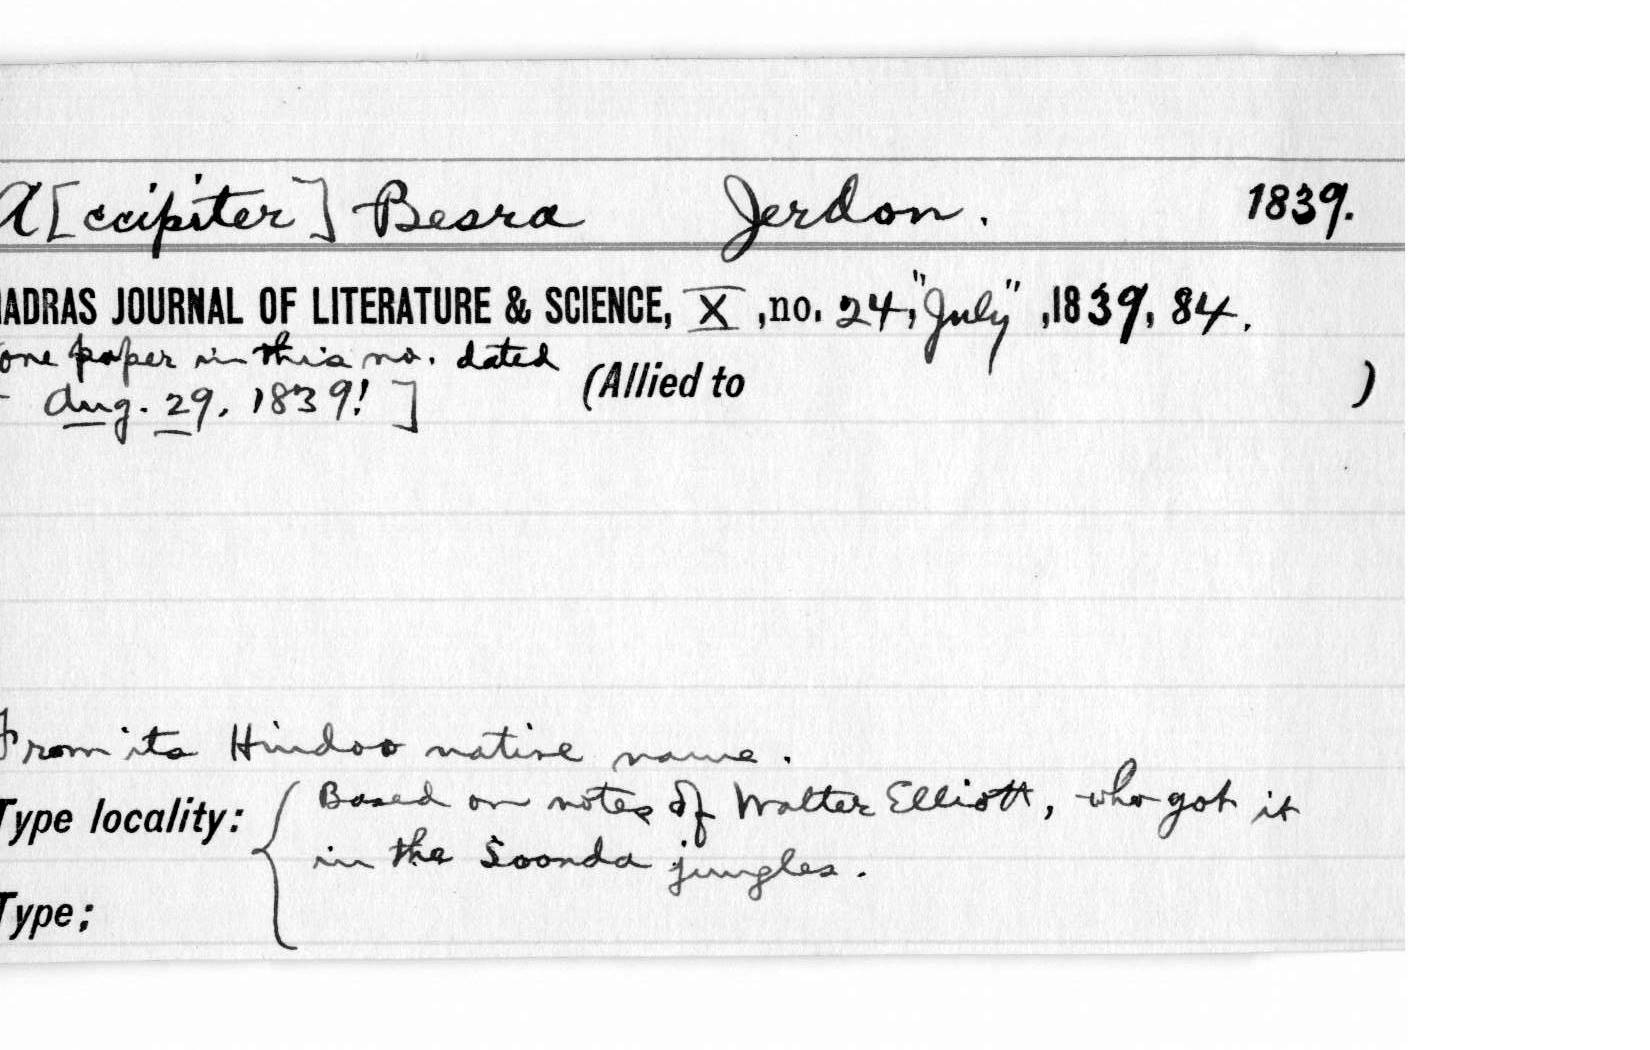 A[ccipiter] Besra Jerdon. 1839.
MADRAS JOURNAL OF LITERATURE & SCIENCE, X, no. 24, "July", 1839, 84.
one paper in this no. dated
Aug. 29, 1839! ]
(Allied to )
From its Hindoo native name.
Type locality: { Based on notes of Walter Elliott, who got it
in the Soonda jungles.
Type;